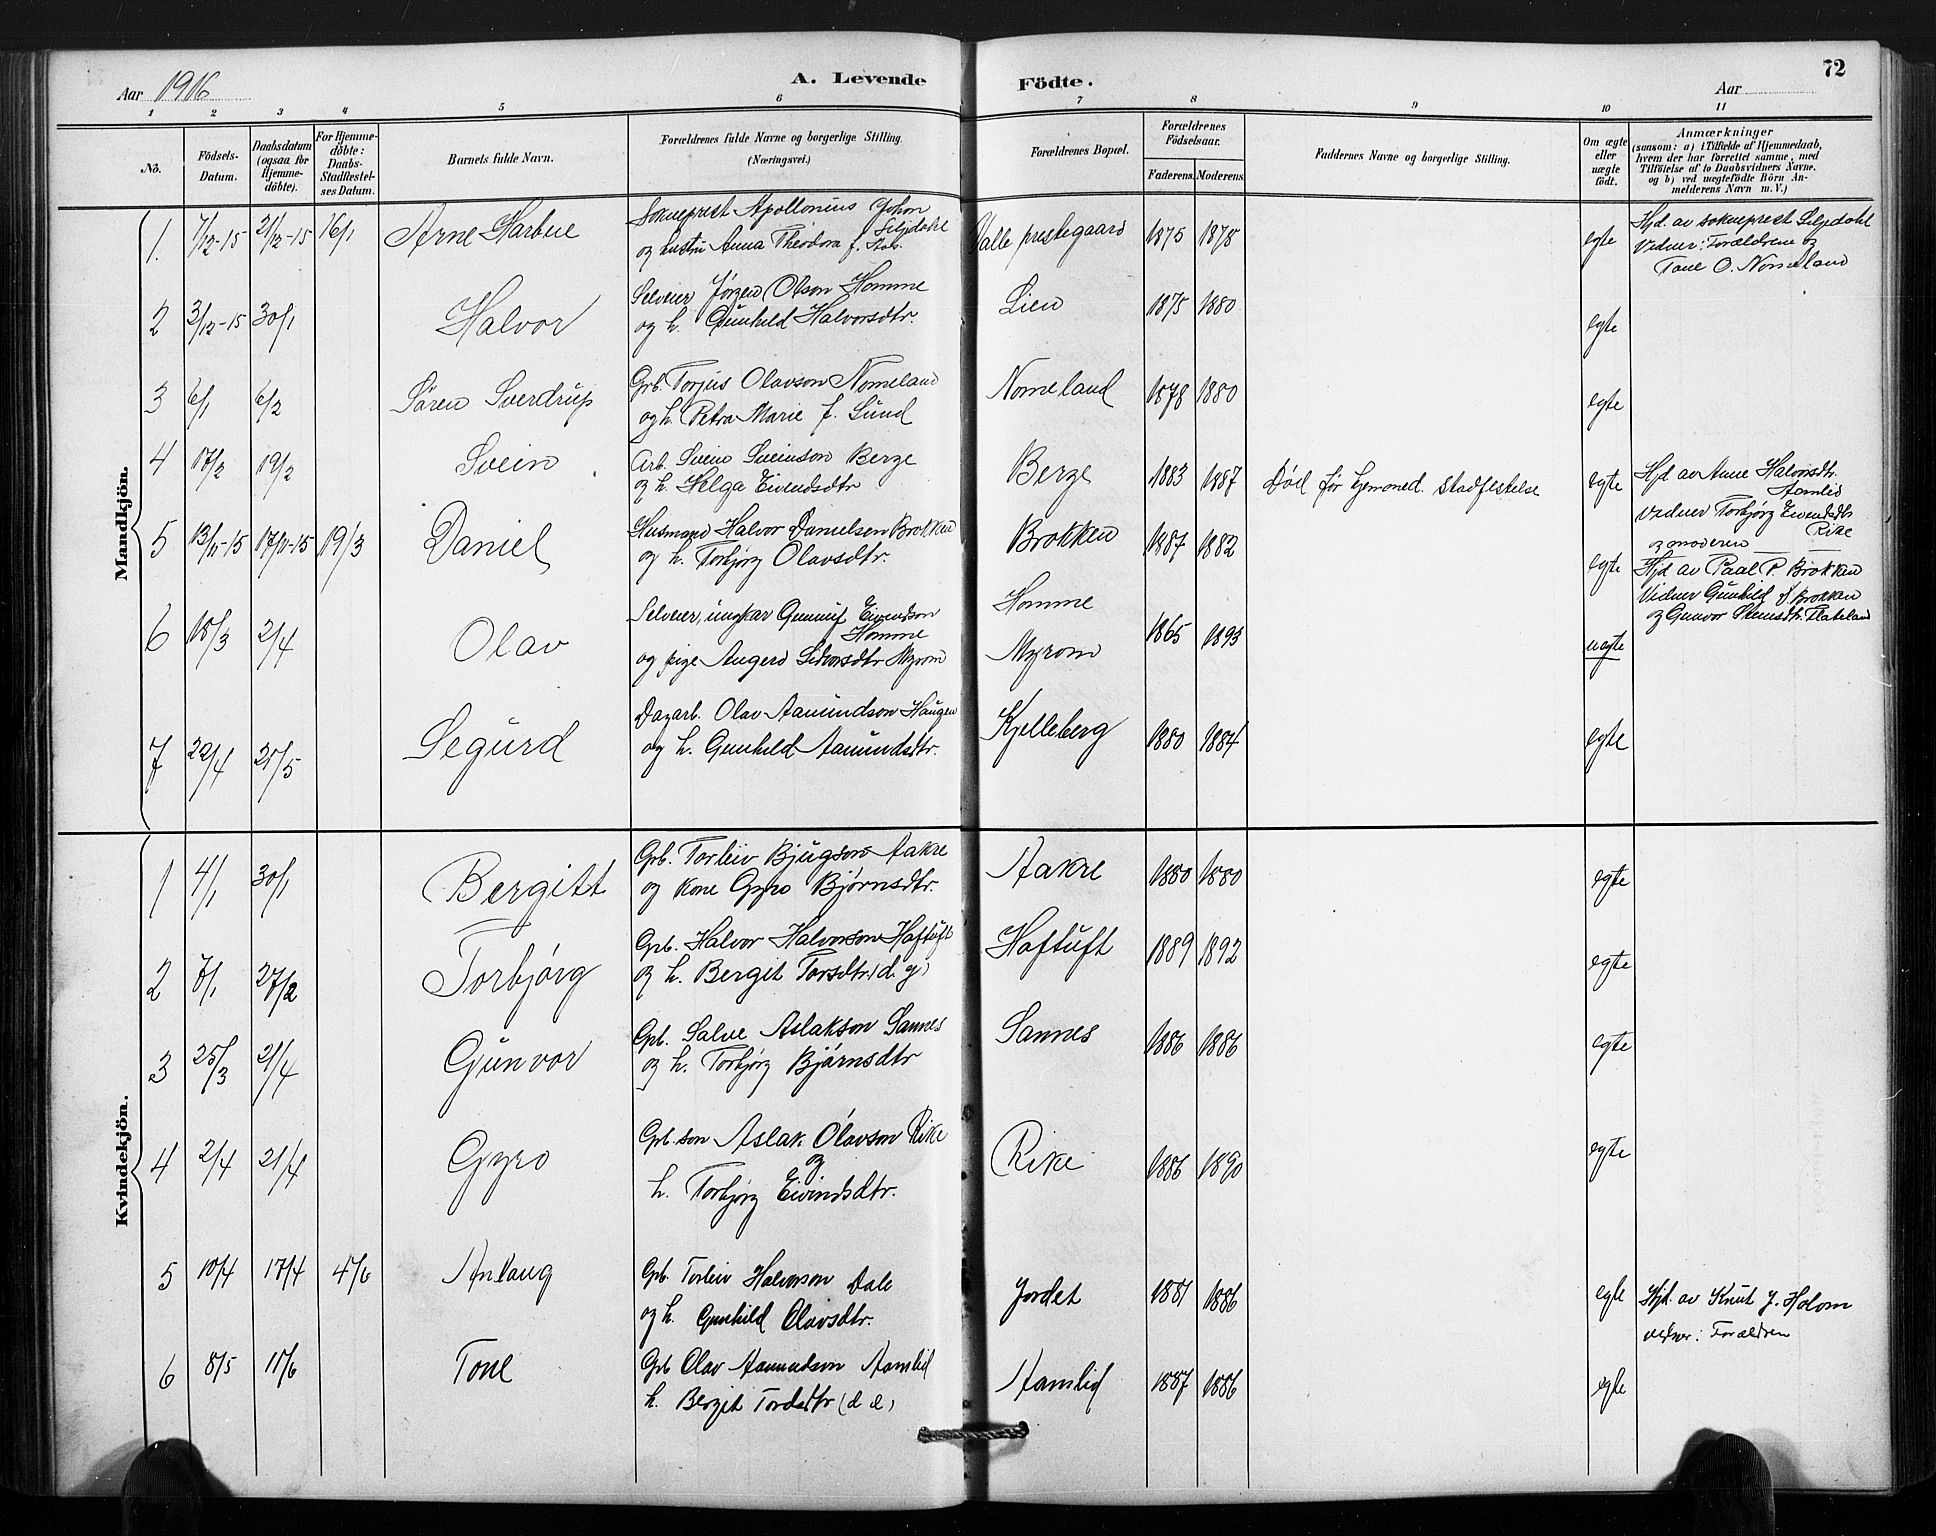 Aar 1916
A. Levende
Födte.
Aar
72
1 2 3 4 5 6 7 8 9 10 11
No.
Födsels-
Datum.
Daabsdatum
(ogsaa for
Hjemme-
döbte).
For Hjemme-
döbte:
Daabs-
Stadfestel-
ses Datum.
Barnets fulde Navn.
Forældrenes fulde Navne og borgerlige Stilling.
(Næringsvei.)
Forældrenes Bopæl.
Forældrenes
Födselsaar.
Faderens. Moderens.
Faddernes Navne og borgerlige Stilling.
Om ægte
eller
uægte
födt.
Anmærkninger
(saasom: a) i Tilfælde af Hjemmedaab,
hvem der har forrettet samme, med
Tilföielse af to Daabsvidners Navne.
og b) ved uægtefödte Börn An-
melderens Navn m. V.)
Mandkjön.
1. 7/12-15 21/12-15 16/1 Arne Sokneprest Apollonius Johan
Siljedahl
og hustru Anna Theodora f.
Valle prestegaard 1875 1878 egte
Hjd. av sokneprest Siljedahl
Vidner: Forældrene og
Tone O. Nomeland
2 3/12-15 30/1 Halvor Selveier Jørgen Olson Homme
og h. Gunhild Halvorsdtr.
Lien 1875 1880 egte
3 6/1 6/2 Søren Sverdrup Grb. Torjus Olavson Nomeland
og h. Petra Marie f. Lund
Nomeland 1878 1880 egte
4 17/2 19/2 Svein Arb. Svein Sveinson Berge
og h. Helga Eivendsdtr
Berge 1883 1887 Død før stadfestelse egte
Hjd av Anne Halvorsdtr.
Aamlid
Vidner Torbjørg Eivendsdtr
Rike
og moderen
5 13/11-15 17/11-15 19/3 Daniel Husmand Halvor Danielsen Brokken
og h. Torbjørg Olavsdtr.
Brokken 1887 1882 egte
Hjd av Paal P. Brokken
Vidner Gunhild Brokken
og Gunvor Flateland
6 18/3 2/4 Olav Selveier, ungkar Gunnuf Eivendson
Homme
og pige Angerd Sidvorsdtr Myrom
Homme
Myrom
1865 1893 uegte
7 22/4 25/5 Segurd Dagarb. Olav Aamundson Haugen
og h. Gunhild Aamundsdtr.
Kjelleberg 1880 1884 egte
Kvindekjön.
1 4/1 30/1 Bergitt Grb. Torleiv Bjugson Aakre
og kone Gyro Bjørnsdtr.
Aakre 1880 1880 egte
2 7/1 27/2 Torbjørg Grb. Halvor Halvorson Haftuft
og h. Bergit Torsdtr (d. y)
Haftuft 1889 1892 egte
3 25/3 21/4 Gunvor Grb. Salve Aslakson Sannes
og h. Torbjørg Bjørnsdtr
Sannes 1886 1886 egte
4 2/4 21/4 Gyro Grb.son Aslak Olavson Rike
og
h. Torbjørg Eivindsdtr.
Rike 1886 1890 egte
5 10/4 17/4 4/6 Anlaug Grb. Torleiv Halvorson Dale
og h. Gunhild Olavsdtr.
Jordet 1881 1886 egte
Hjd. av Knut J. Holom
vidner: Forældren
6 8/5 11/6 Tone Grb Olav Aamundson Aamlid
h. Bergit Tordsdtr (d e)
Aamlid 1887 1886 egte